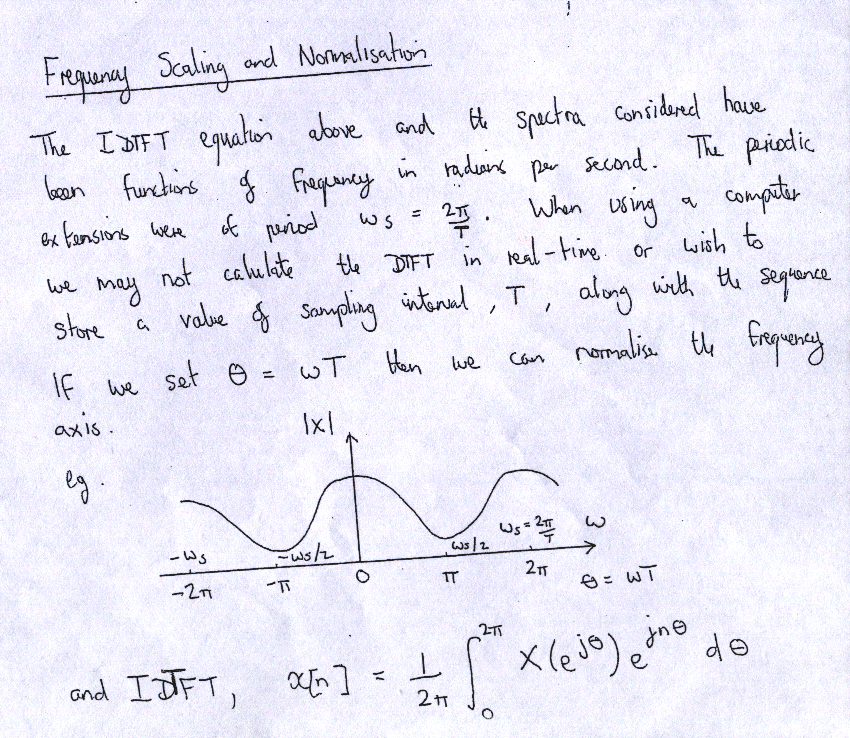 Frequency Scaling and Normalisation
The IDTFT equation above and the spectra considered have
been functions of frequency in radians per second. The periodic
extensions were of period ωs = 2π/T. When using a computer
we may not calculate the DTFT in real-time or wish to
store a value of sampling interval, T, along with the sequence
If we set Θ = ωT then we can normalise the frequency
axis.
|X|
eg.
ωs = 2π/T ω
-ωs -ωs/2 ωs/2
-2π -π 0 π 2π Θ = ωT
and IDTFT, x[n] = 1/2π ∫₀^2π X(e^jΘ) e^jnΘ dΘ